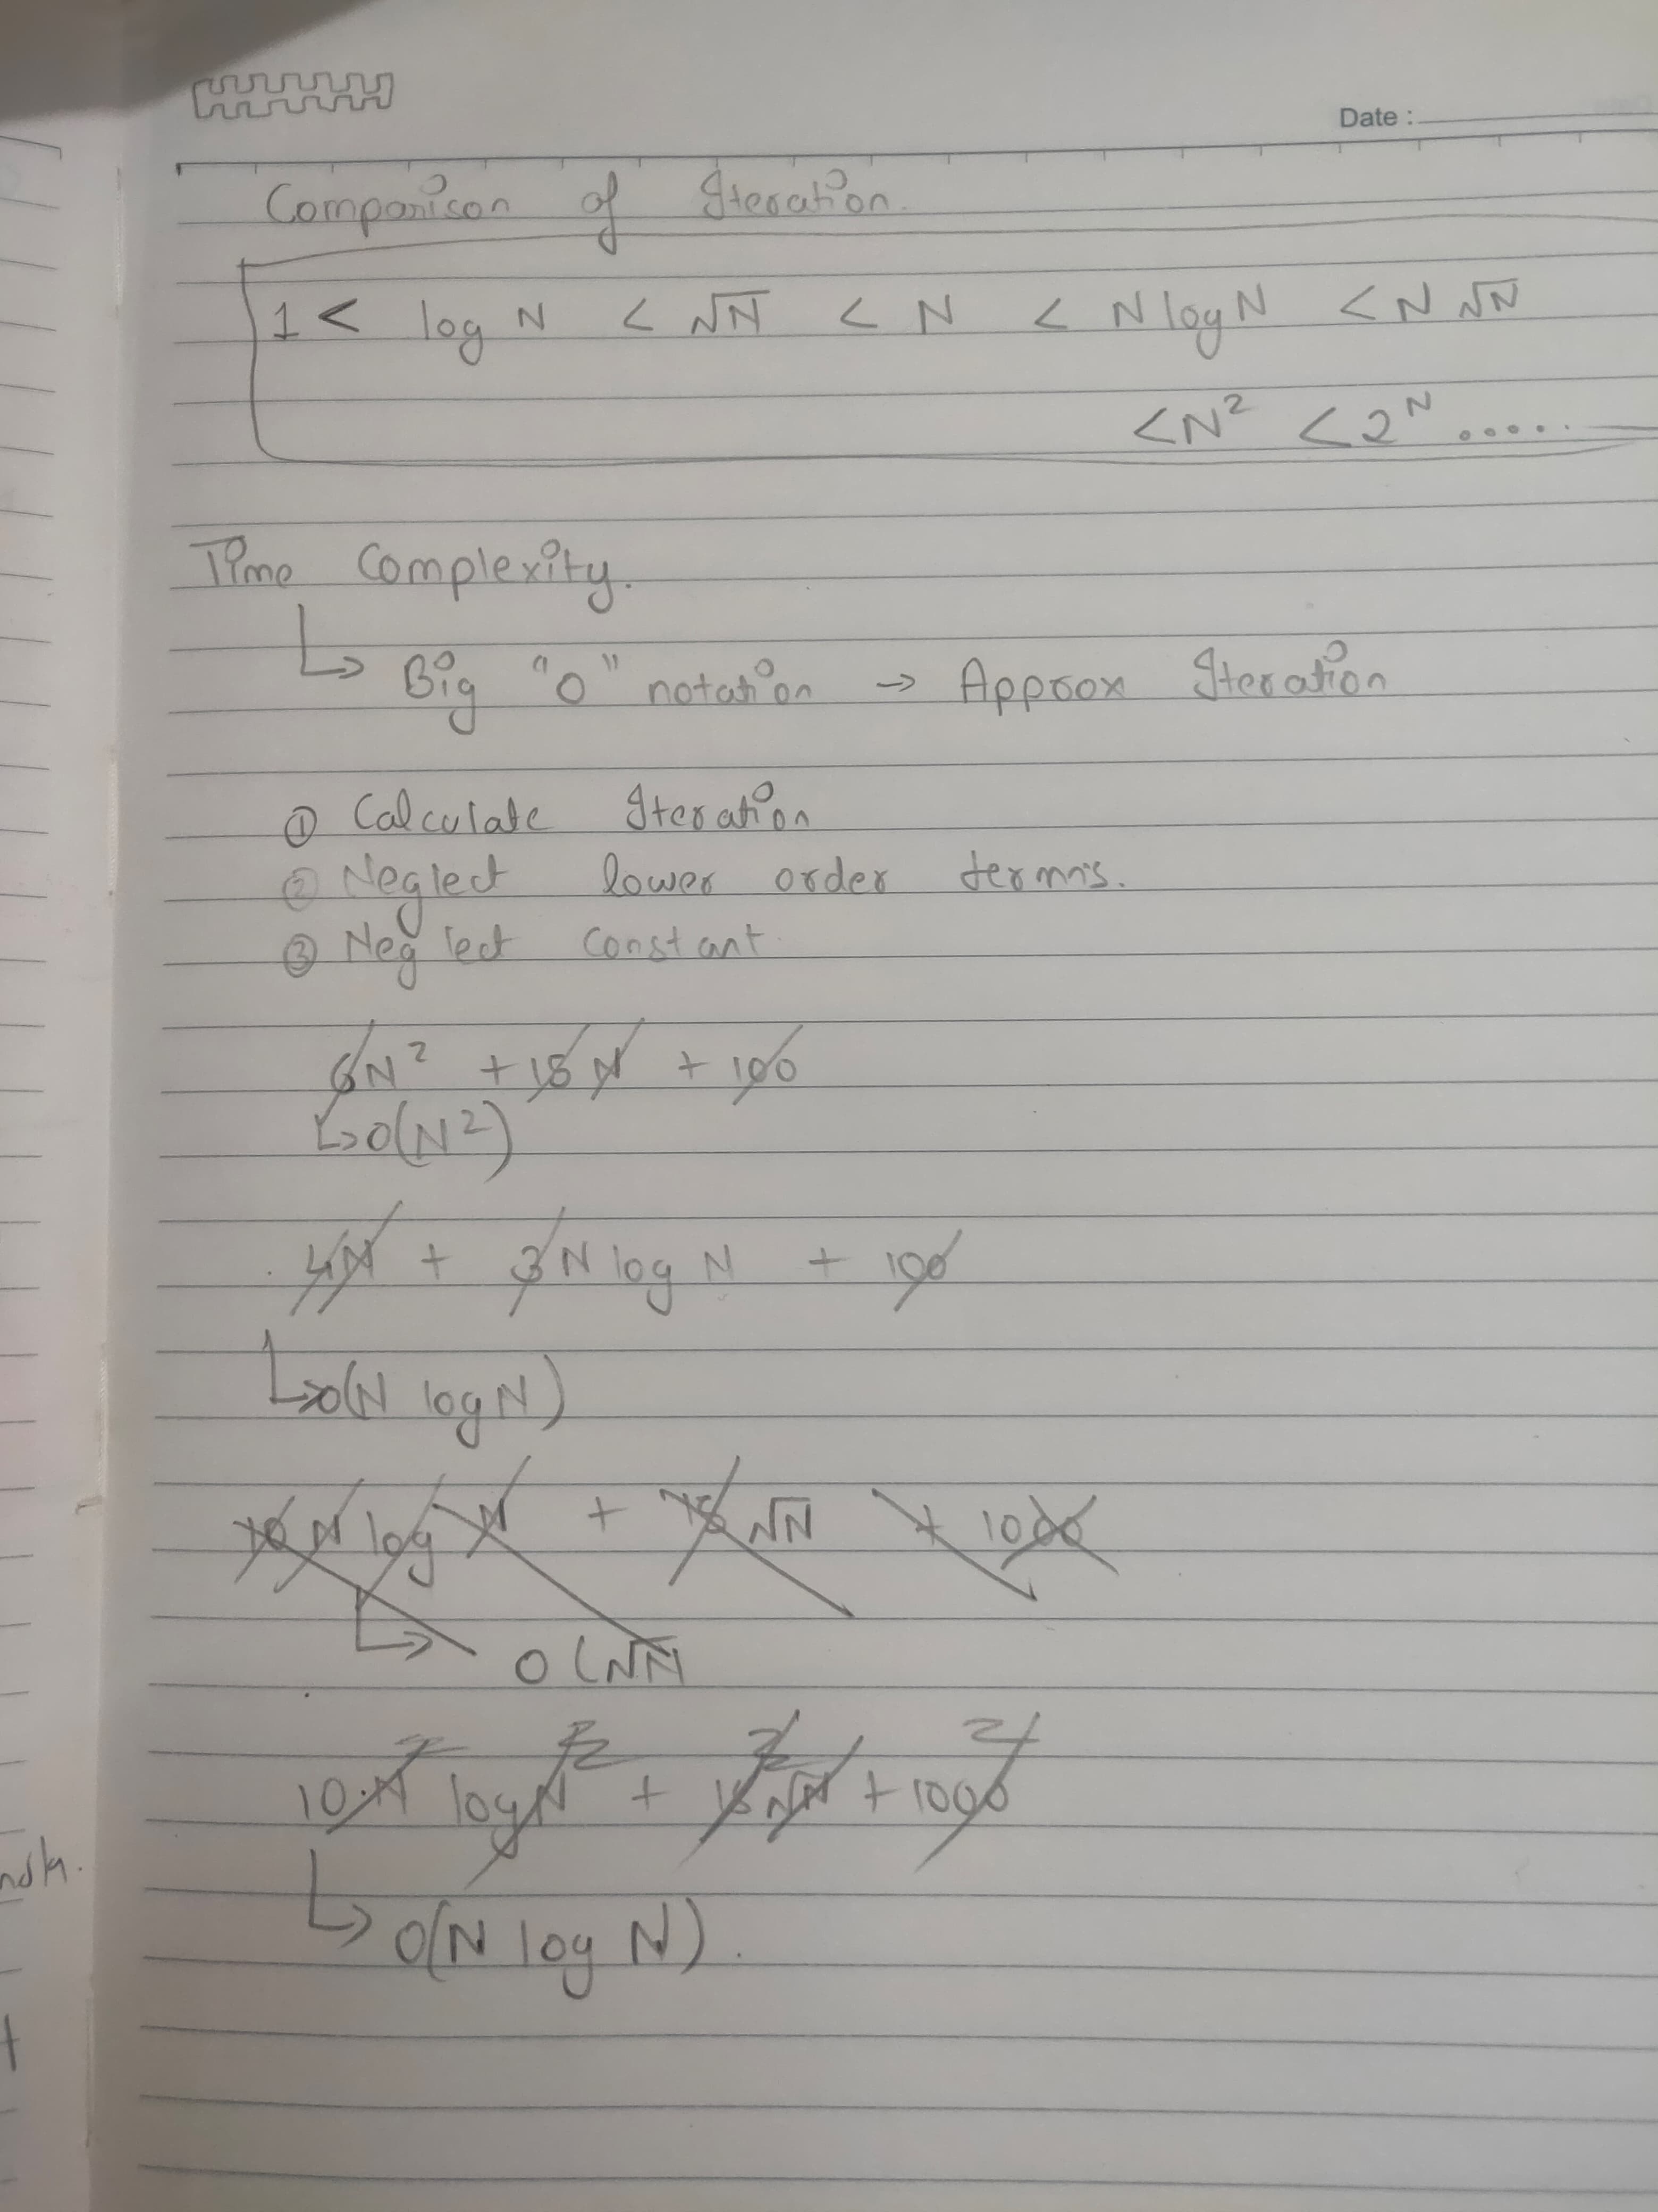 Date :
Comparison of Iteration.
1 < log N < √N < N < N log N < N √N
< N² < 2ᴺ .....
Time Complexity.
↳ Big "O" notation → Approx Iteration
① Calculate Iteration
② Neglect lower order terms.
③ Neglect constant
6N² + 15N + 100
↳ O(N²)
4N + 3N log N + 100
↳ O(N log N)
10 N log N + 15 √N + 1000
↳ O(√N
10 N log N + 15 √N + 1000
↳ O(N log N).